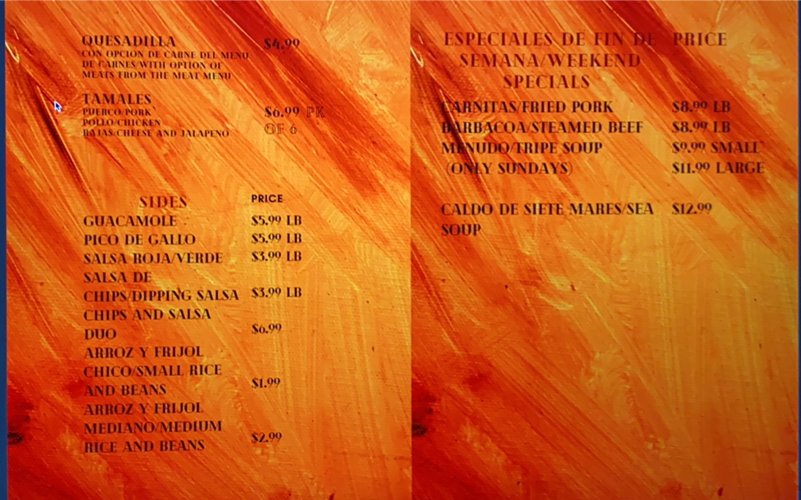 QUESADILLA $4.99
CON OPCION DE CARNE DEL MENU
DE CARNES/WITH OPTION OF
MEATS FROM THE MEAT MENU
TAMALES
PUERCO/PORK $6.99 PK
POLLO/CHICKEN
RAJAS/CHEESE AND JALAPENO OF 6
SIDES PRICE
GUACAMOLE $5.99 LB
PICO DE GALLO $5.99 LB
SALSA ROJA/VERDE $3.99 LB
SALSA DE
CHIPS/DIPPING SALSA $3.99 LB
CHIPS AND SALSA
DUO $6.99
ARROZ Y FRIJOL
CHICO/SMALL RICE
AND BEANS $1.99
ARROZ Y FRIJOL
MEDIANO/MEDIUM
RICE AND BEANS $2.99
ESPECIALES DE FIN DE PRICE
SEMANA/WEEKEND
SPECIALS
CARNITAS/FRIED PORK $8.99 LB
BARBACOA/STEAMED BEEF $8.99 LB
MENUDO/TRIPE SOUP $9.99 SMALL
(ONLY SUNDAYS) $11.99 LARGE
CALDO DE SIETE MARES/SEA $12.99
SOUP